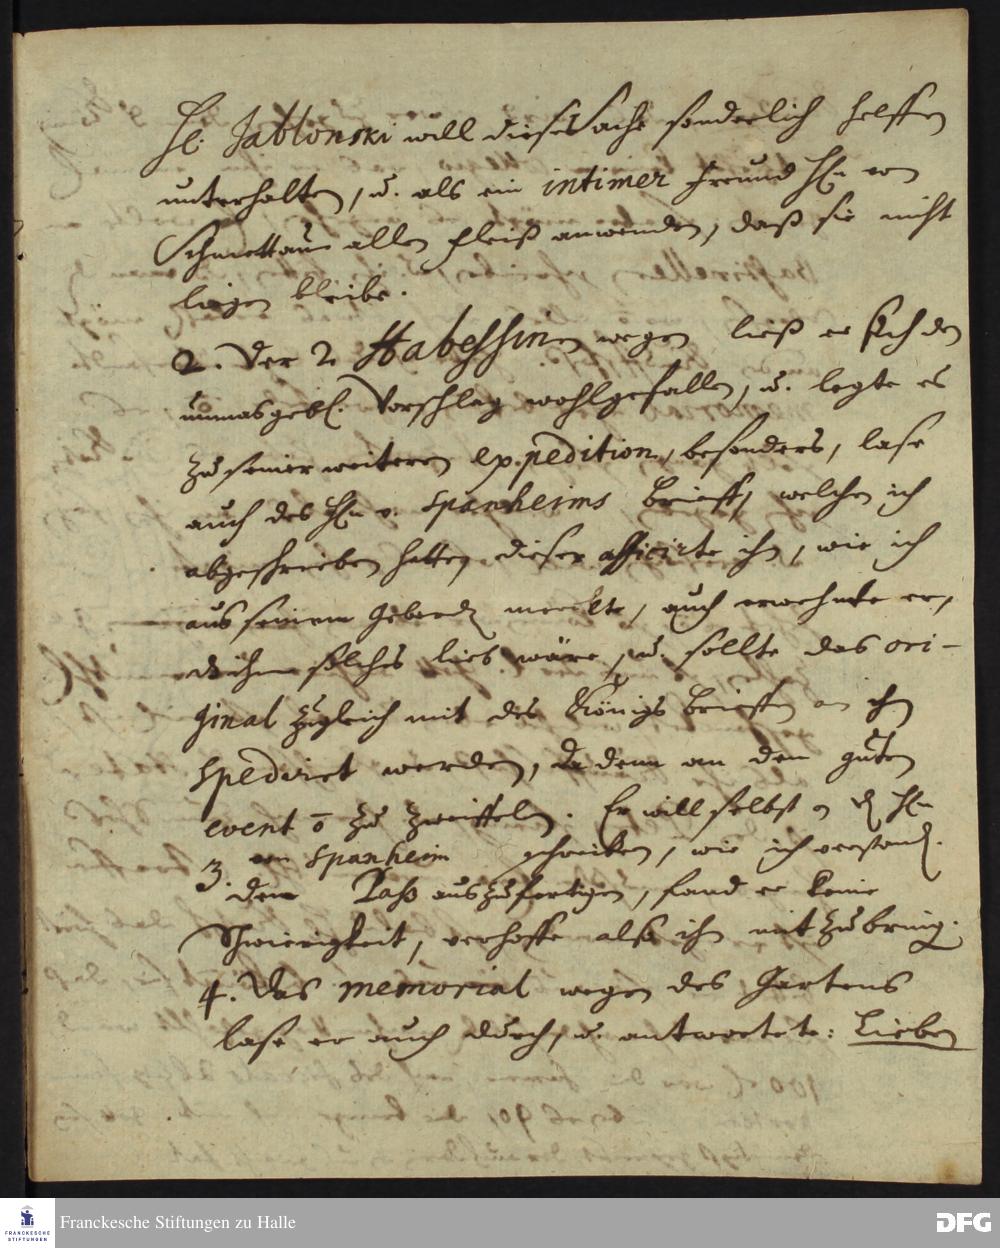 H. Jablonski will diese Sache sonderlich helffen
unterhalten, u. als ein intimer Freund Hn von
Schmettau allen Fleiß anwenden, daß sie nicht
liegen bleibe.
2. Der 2 Habessinen wegen ließ er sich den
unmasgebl. Vorschlag wohlgefallen, u. legte es
zu seiner weiteren expedition, besonders, lase
auch des Hn v. Spanheims Brieff, welchen ich
abgeschrieben hatte, dieser afficirte ihn, wie ich
aus seinem Geberden merckte, auch erwehnte er,
daß ihm solches lieb wäre, u. sollte das ori-
ginal zugleich mit des Königs Brieffen an ihn
spediret werden, da denn an dem guten
event zu zweiffeln. Er will selbst Hn
von Spanheim schreiben, wie ich verstand.
3. den Pass auszufertigen, fand er keine
Schwierigkeit, verhoffe also ihn mitzubring.
4. Das memorial wegen des Gartens
lase er auch durch, u. antwortete: Lieben
Franckesche Stiftungen zu Halle
FRANCKESCHE
STIFTUNGEN
DFG